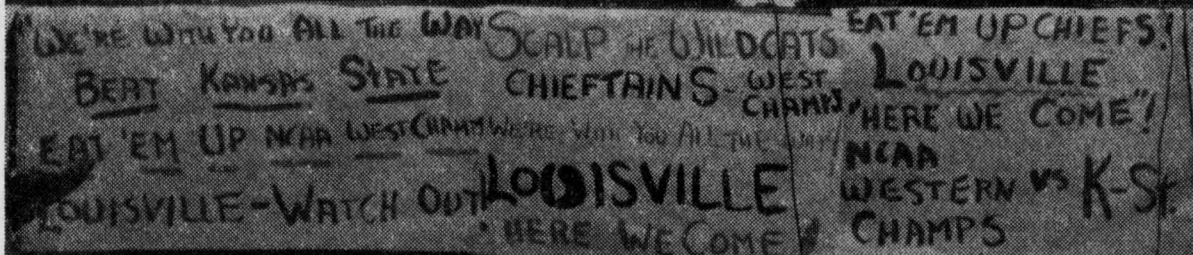 "WE'RE WITH YOU ALL THE WAY
BEAT KANSAS STATE
EAT 'EM UP NCAA WEST CHAMPS
LOUISVILLE-WATCH OUT!
SCALP THE WILDCATS
CHIEFTAINS-WEST CHAMPS
WE'RE WITH YOU ALL THE WAY
LOUISVILLE
HERE WE COME
EAT 'EM UP CHIEFS!
LOUISVILLE
"HERE WE COME"!
NCAA
WESTERN VS K-St.
CHAMPS